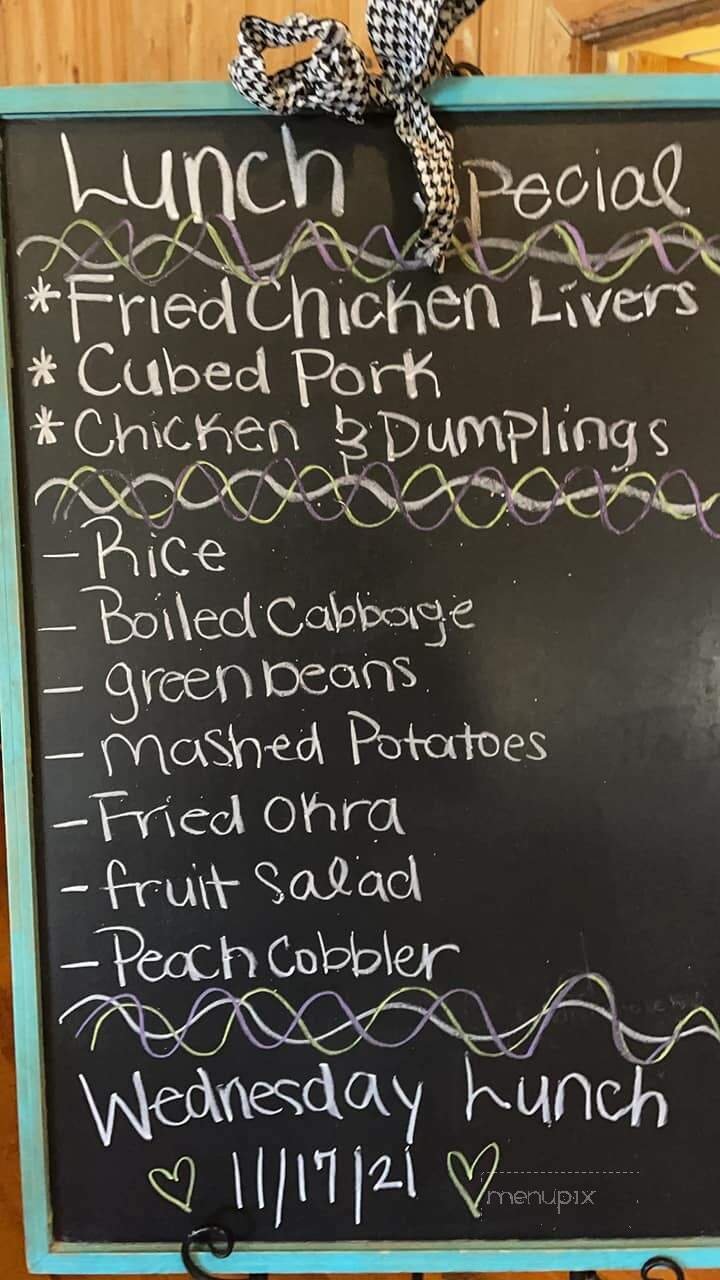 Lunch Special
* Fried Chicken Livers
* Cubed Pork
* Chicken & Dumplings
- Rice
- Boiled Cabbage
- green beans
- mashed Potatoes
- Fried Okra
- fruit Salad
- Peach Cobbler
Wednesday Lunch
11/17/21
menupix